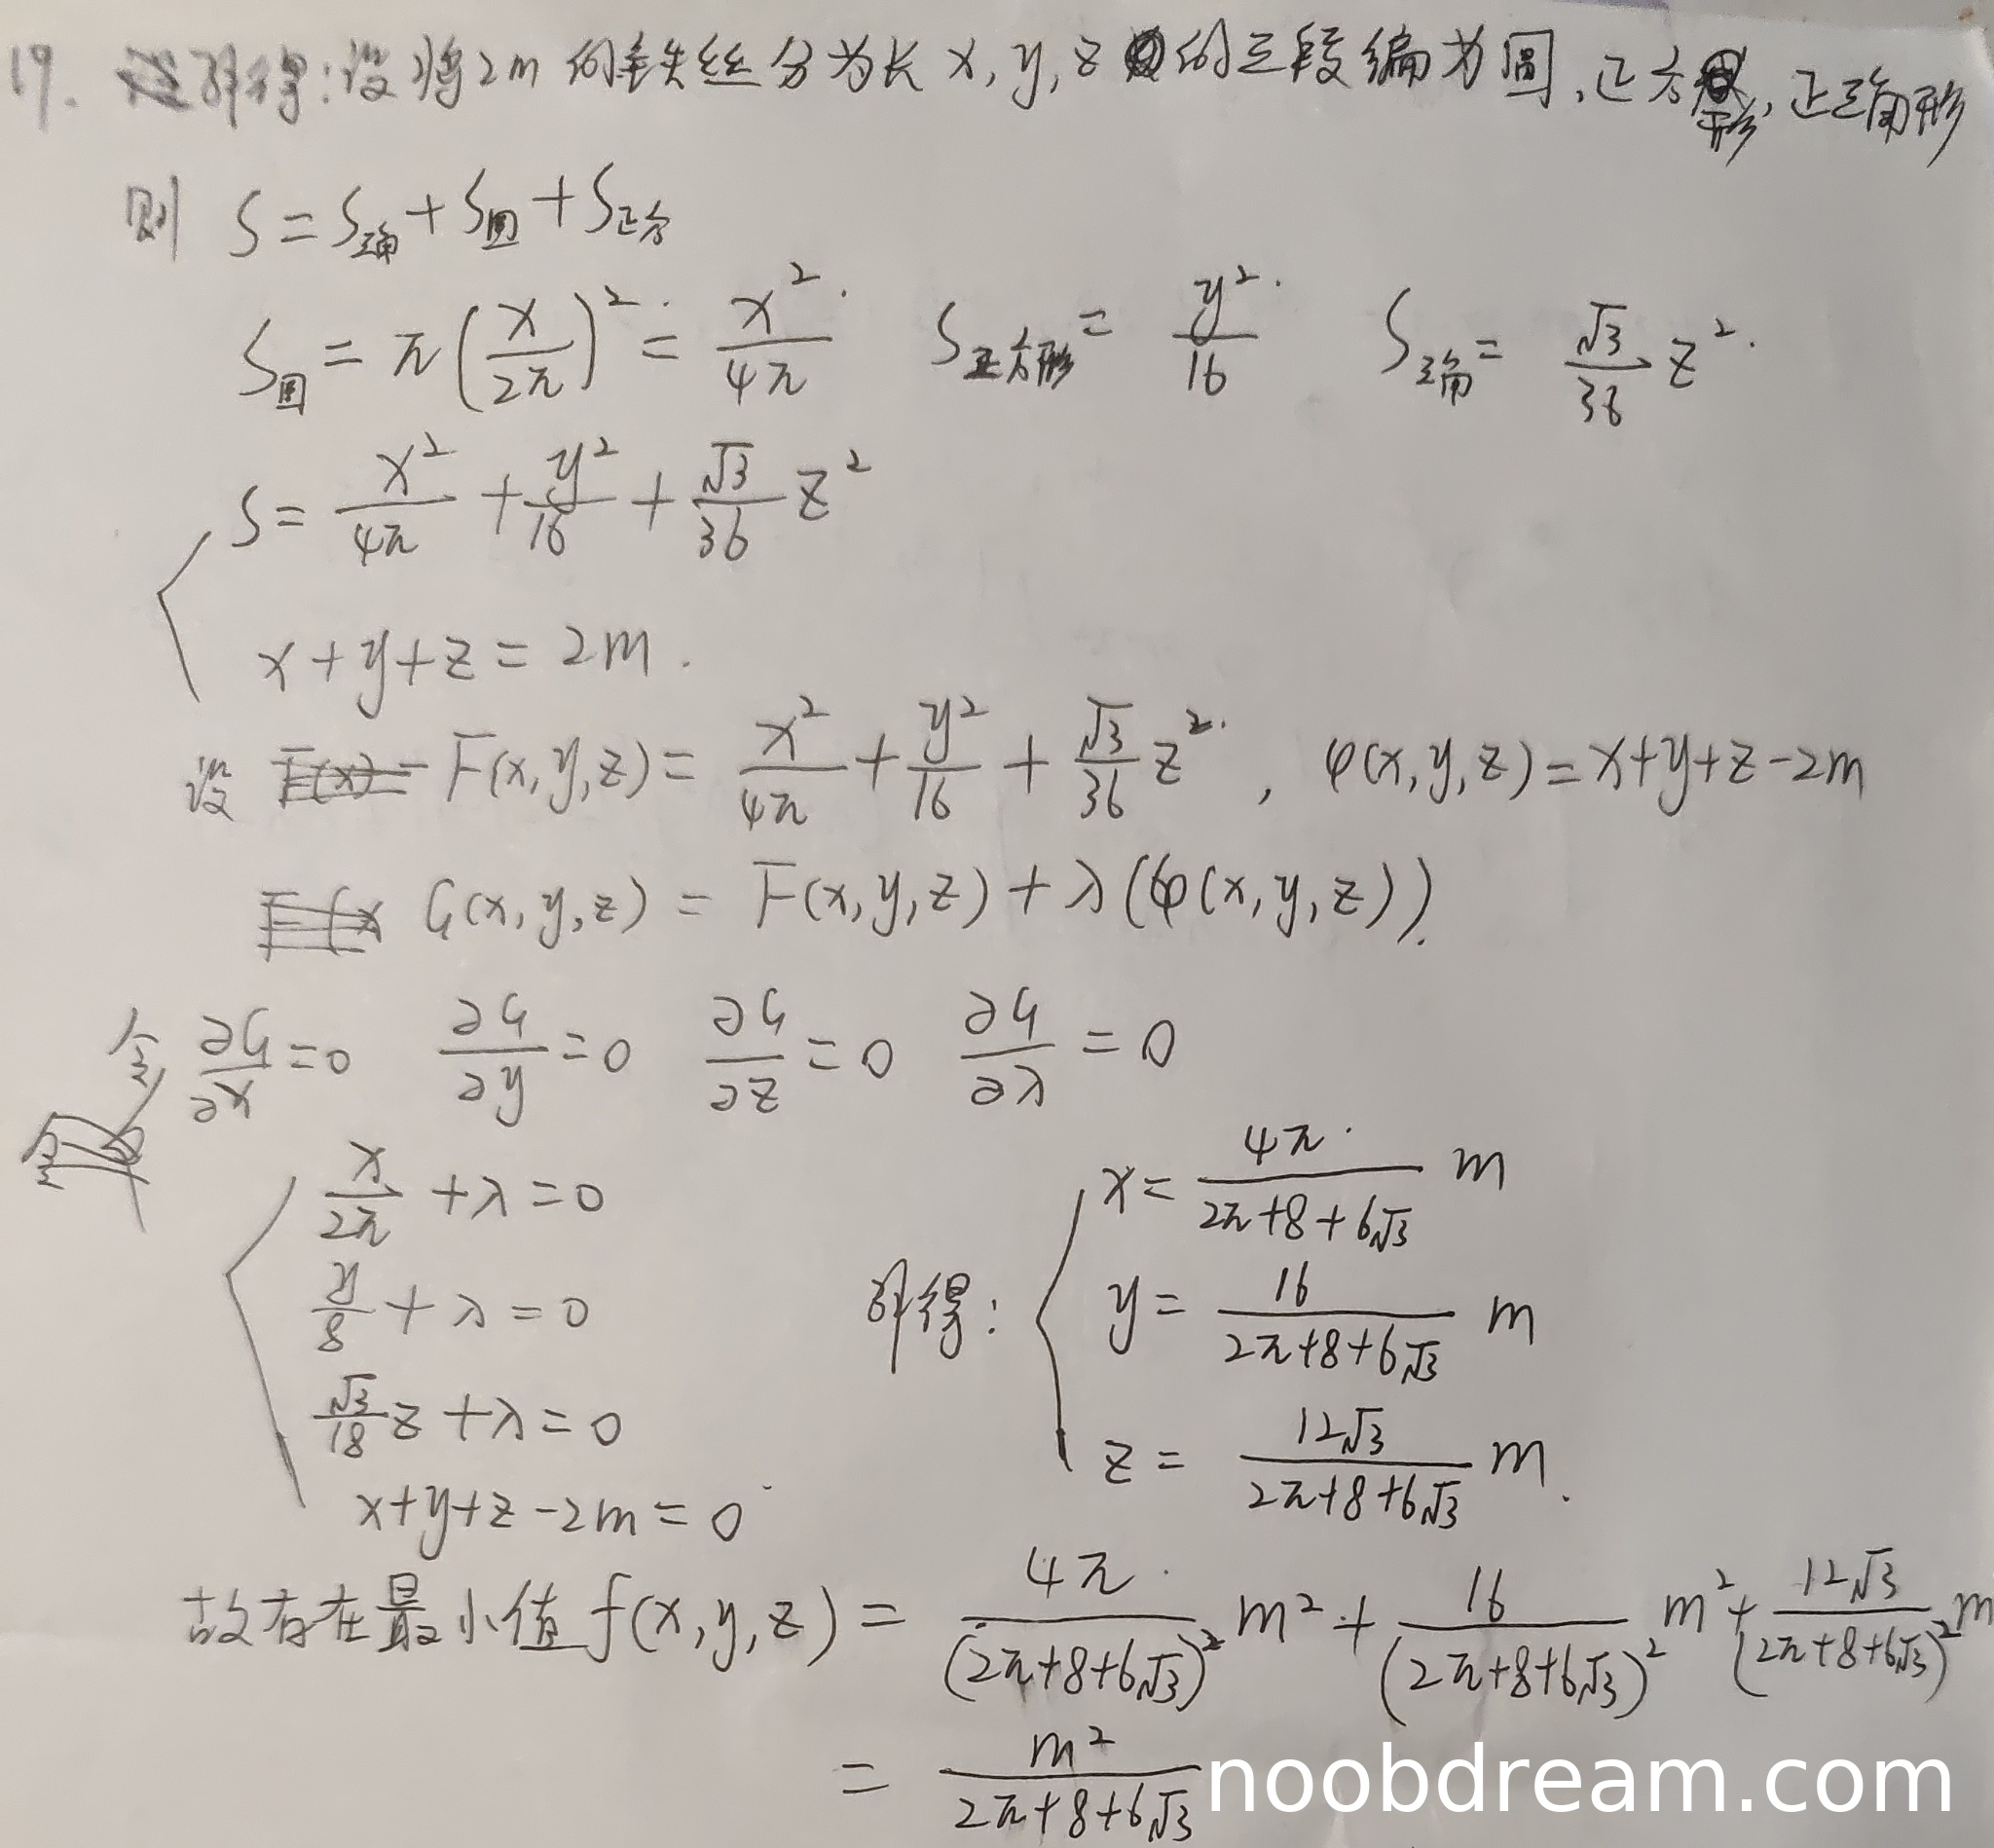 19. 解得:设将2m的铁丝分为长x,y,z的三段编为圆,正方形,正三角形
则 S=S三角+S圆+S正方
S圆=π(x/2π)²=x²/4π S正方形=y²/16 S三角=√3/36 z²
S=x²/4π+y²/16+√3/36 z²
x+y+z=2m.
设 F(x,y,z)=x²/4π+y²/16+√3/36 z², φ(x,y,z)=x+y+z-2m
G(x,y,z)=F(x,y,z)+λ(φ(x,y,z)).
令 ∂G/∂x=0 ∂G/∂y=0 ∂G/∂z=0 ∂G/∂λ=0
x/2π+λ=0
y/8+λ=0
√3/18 z+λ=0
x+y+z-2m=0
解得:
x=4π/(2π+8+6√3) m
y=16/(2π+8+6√3) m
z=12√3/(2π+8+6√3) m.
故存在最小值f(x,y,z)=4π/(2π+8+6√3)² m²+16/(2π+8+6√3)² m²+12√3/(2π+8+6√3)² m
=m²/(2π+8+6√3)
noobdream.com